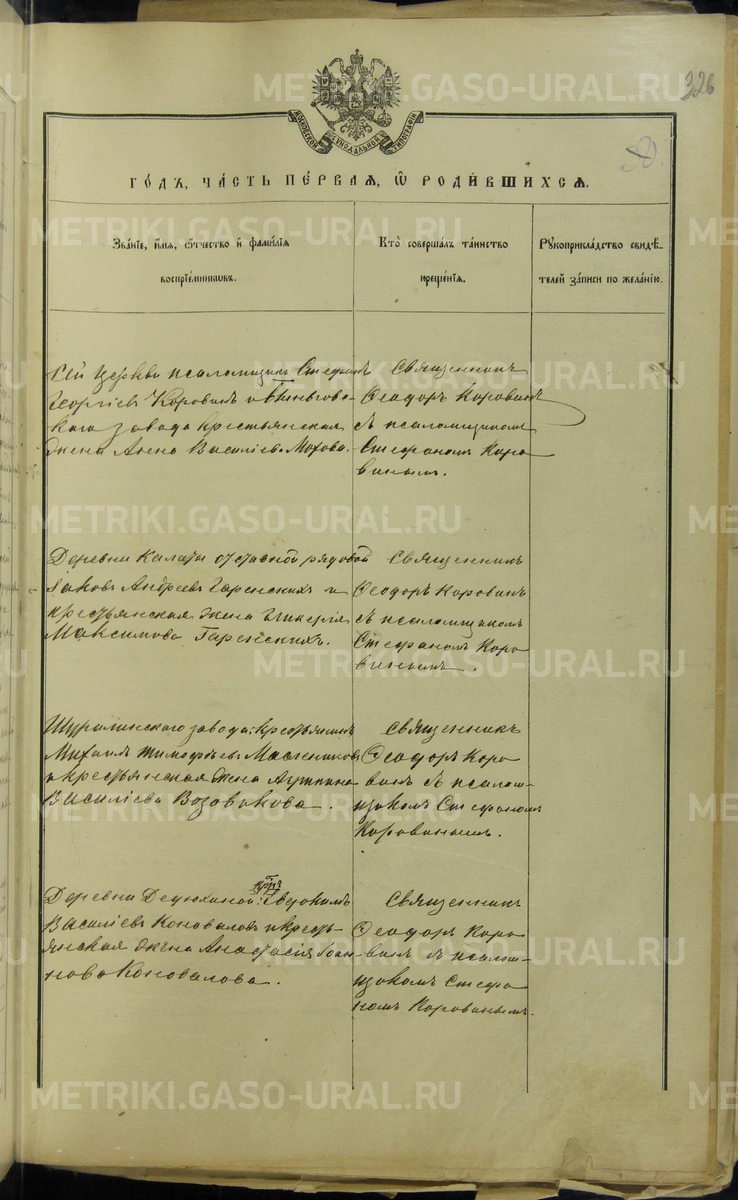 326
38
МОСКОВСКОЙ СУНОДАЛЬНОЙ ТИПОГРАФІИ
ГО́ДЪ, ЧА́СТЬ ПЕ́РВАѦ, Ѽ РОДИ́ВШИХСѦ.
Зва́нїе, и҆́мѧ, ѻ҆́тчество и҆ фами́лїѧ
воспрїе́мникѡвъ.
Кто̀ соверша́лъ та́инство
креще́нїѧ.
Рꙋкоприкла́дство свидѣ́-
телей за́писи по жела́нїю.
Сей церкви псаломщикъ Стефанъ
Георгіевъ Коровинъ и
каго завода крестьянская
жена Анна Василіева Мохова.
Священникъ
Ѳеодоръ Коровинъ
съ псаломщикомъ
Стефаномъ Коро
винымъ.
Деревни Калаты отставной рядовой
Іаковъ Андреевъ Гаренскихъ и
крестьянская жена Гликерія
Максимова Гаренскихъ.
Священникъ
Ѳеодоръ Коровинъ
съ псаломщикомъ
Стефаномъ Коро
винымъ.
Шуралинскаго завода крестьянинъ
Михаилъ Тимофѣевъ Масленниковъ
и крестьянская жена
Василіева Возовикова.
Священникъ
Ѳеодоръ Коро
винъ съ псалом-
щикомъ Стефаномъ
Коровинымъ.
Деревни Дедюхиной кр-нъ Евдокимъ
Василіевъ Коноваловъ и кресть-
янская жена Анастасія Іоан-
нова Коновалова.
Священникъ
Ѳеодоръ Коро
винъ съ псалом-
щикомъ Стефа
номъ Коровинымъ.
METRIKI.GASO-URAL.RU